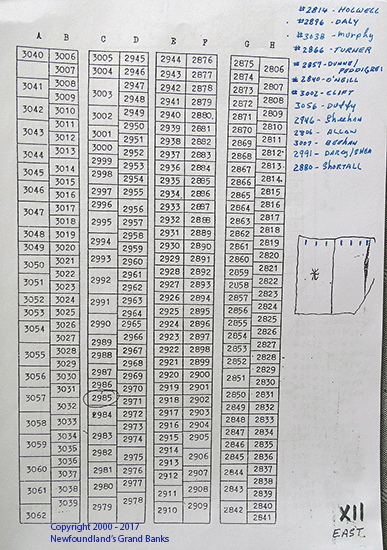 #2814 - HOLWELL
#2896 - DALY
#3038 - murphy
#2866 - TURNER
#2857 - DUNNE/
PEDDIGREI
#2840 - O'NEILL
#3002 - CLIFT
3056 - Duffy
2946 - Sheehan
2806 - ALLAN
3007 - BEEHAN
2991 - DARCY/SHEA
2880 - SHORTALL
A B C D E F G H
3040
3041
3042
3043
3044
3045
3046
3047
3048
3049
3050
3051
3052
3053
3054
3055
3056
3057
3058
3059
3060
3061
3062
3006
3007
3008
3009
3010
3011
3012
3013
3014
3015
3016
3017
3018
3019
3020
3021
3022
3023
3024
3025
3026
3027
3028
3029
3030
3031
3032
3033
3034
3035
3036
3037
3038
3039
3005
3004
3003
3002
3001
3000
2999
2998
2997
2996
2995
2994
2993
2992
2991
2990
2989
2988
2987
2986
2985
2984
2983
2982
2981
2980
2979
2945
2946
2947
2948
2949
2950
2951
2952
2953
2954
2955
2956
2957
2958
2959
2960
2961
2962
2963
2964
2965
2966
2967
2968
2969
2970
2971
2972
2973
2974
2975
2976
2977
2978
2944
2943
2942
2941
2940
2939
2938
2937
2936
2935
2934
2933
2932
2931
2930
2929
2928
2927
2926
2925
2924
2923
2922
2921
2920
2919
2918
2917
2916
2915
2914
2913
2912
2911
2910
2876
2877
2878
2879
2880
2881
2882
2883
2884
2885
2886
2887
2888
2889
2890
2891
2892
2893
2894
2895
2896
2897
2898
2899
2900
2901
2902
2903
2904
2905
2906
2907
2908
2909
2875
2874
2873
2872
2871
2870
2869
2868
2867
2866
2865
2864
2863
2862
2861
2860
2859
2858
2857
2856
2855
2854
2853
2852
2851
2850
2849
2848
2847
2846
2845
2844
2843
2842
2806
2807
2808
2809
2810
2811
2812
2813
2814
2815
2816
2817
2818
2819
2820
2821
2822
2823
2824
2825
2826
2827
2828
2829
2830
2831
2832
2833
2834
2835
2836
2837
2838
2839
2840
2841
XII
EAST.
Copyright 2000 - 2017
Newfoundland's Grand Banks